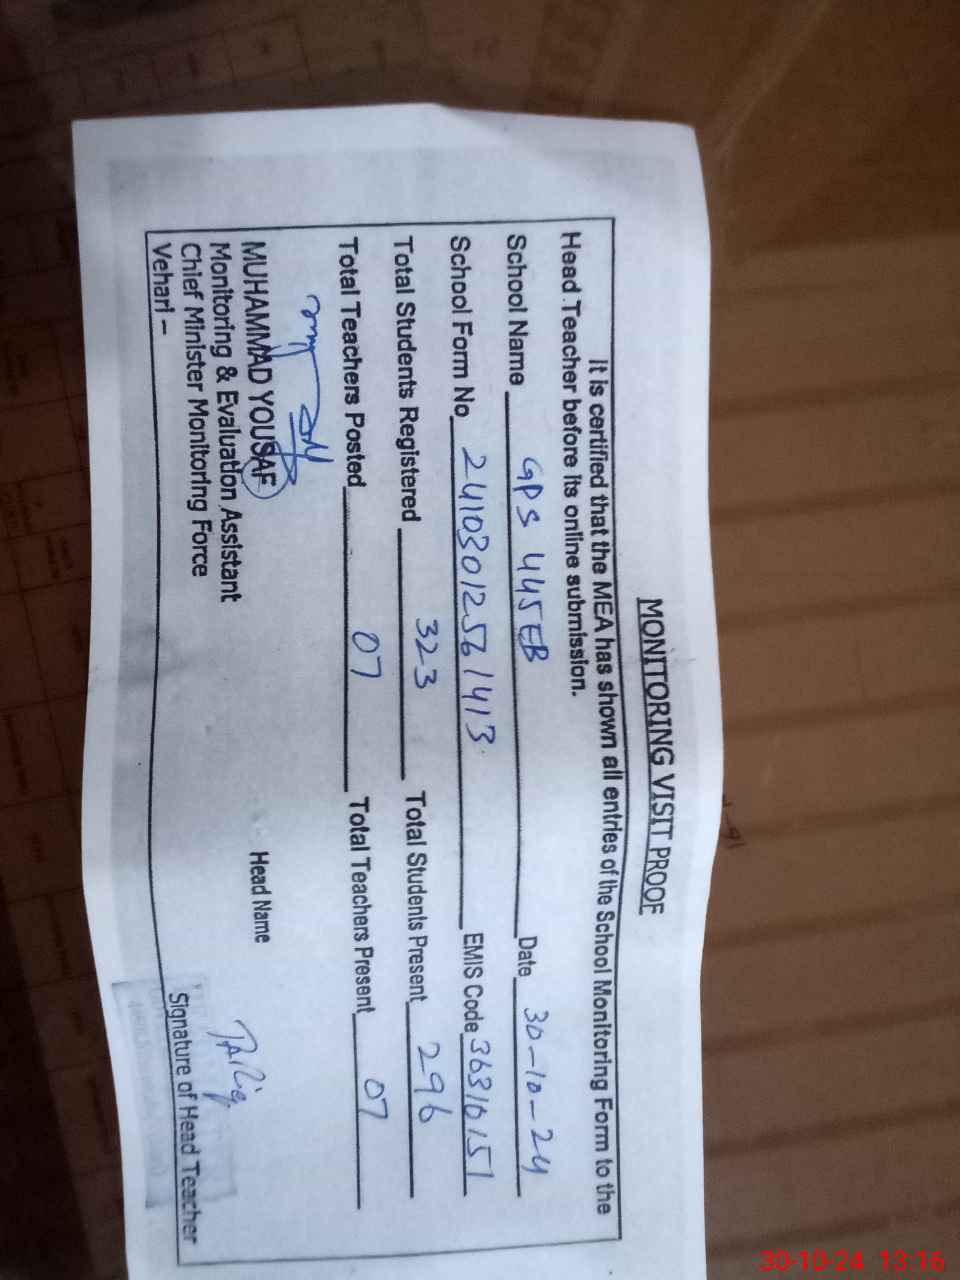 MONITORING VISIT PROOF
It is certified that the MEA has shown all entries of the School Monitoring Form to the
Head Teacher before its online submission.
School Name GPS 445EB Date 30-10-24
School Form No 24103012561413 EMIS Code 36310151
Total Students Registered 323 Total Students Present 296
Total Teachers Posted 07 Total Teachers Present 07
MUHAMMAD YOUSAF Head Name
Monitoring & Evaluation Assistant
Chief Minister Monitoring Force
Vehari –
Signature of Head Teacher
30-10-24 13:16